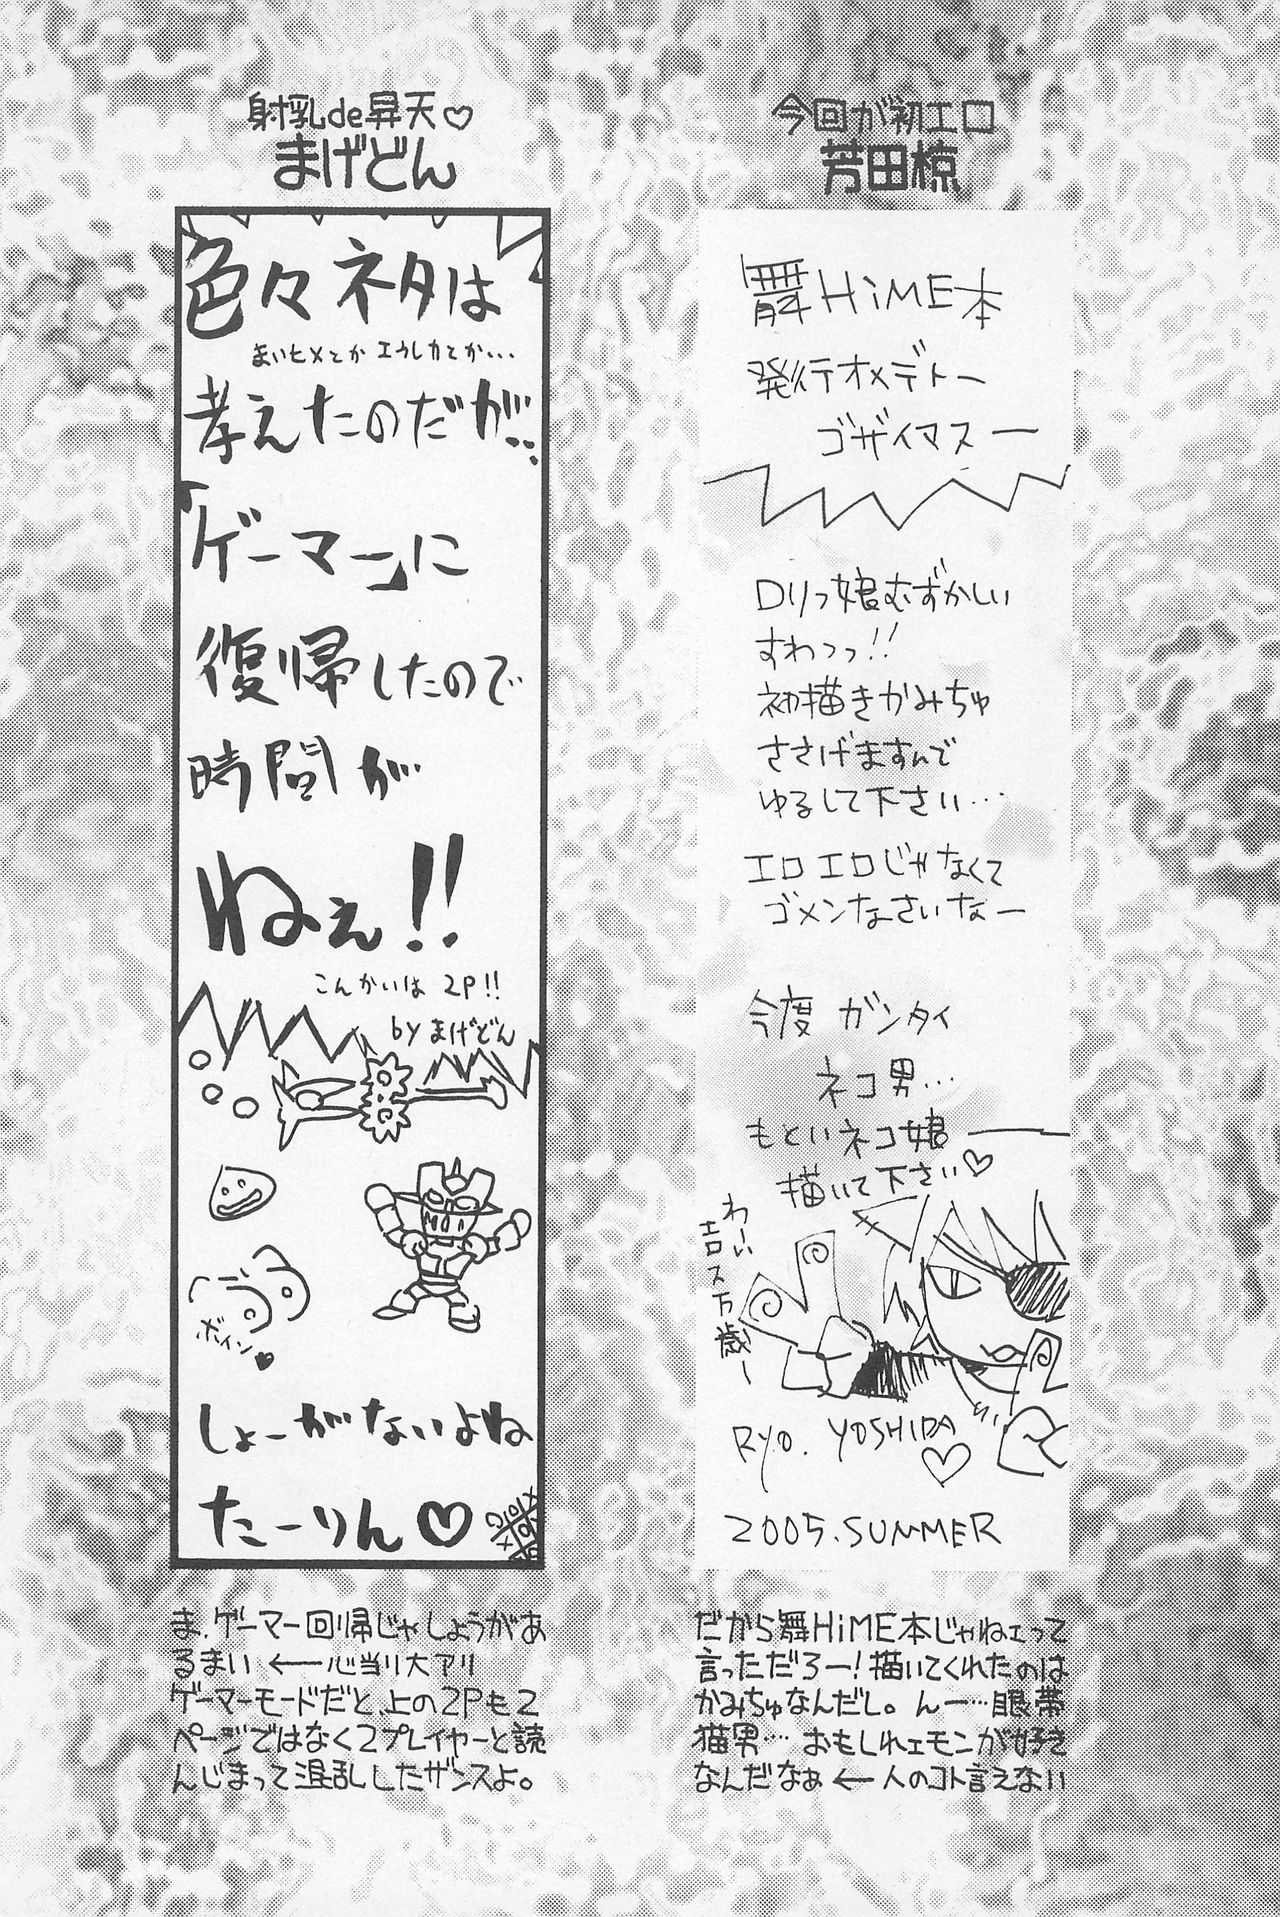 今回が初エロ
芳田椋
舞HiME本
発行オメデトー
ゴザイマスー
ロリっ娘むずかしい
すわっっ!!
初描きかみちゅ
ささげますんで
ゆるして下さい…
エロエロじゃなくて
ゴメンなさいなー
今度 ガンタイ
ネコ男…
もといネコ娘
描いて下さい♡
わーい
エロス万歳ー
RYO. YOSHIDA♡
2005.SUMMER
だから舞HiME本じゃねェって
言っただろー!描いてくれたのは
かみちゅなんだし。んー…眼帯
猫男… おもしれェモンが好き
なんだなぁ ← 人のコト言えない
射乳de昇天♡
まげどん
色々ネタは
まいヒメとか エウレカとか…
考えたのだが…
「ゲーマー」に
復帰したので
時間が
ねぇ!!
こんかいは 2P!!
by まげどん
ボイン♥
しょーがないよね
たーりん♡
ま、ゲーマー回帰じゃしょうがあ
るまい ←心当り大アリ
ゲーマーモードだと、上の2Pも2
ページではなく2プレイヤーと読
んじまって混乱したザンスよ。